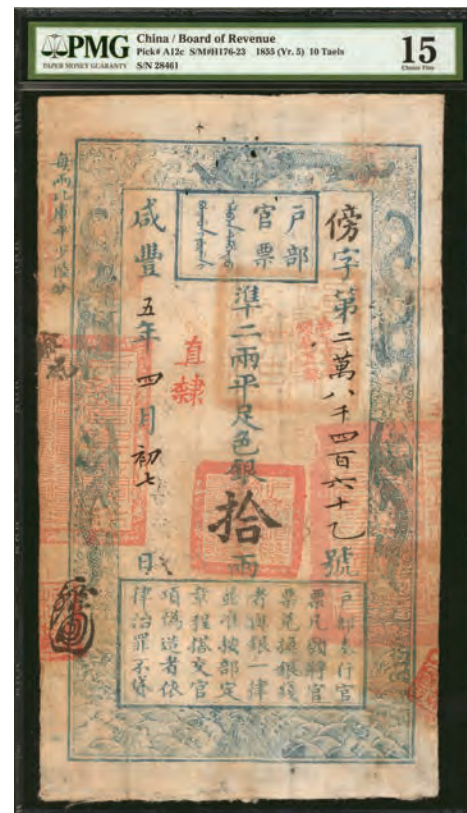 PMG
PAPER MONEY GUARANTY
China / Board of Revenue
Pick# A12c S/M#H176-23 1855 (Yr. 5) 10 Taels
S/N 28461
15
Choice Fine
戶部
官票
傍字第二萬八千四百六十乙號
準二兩平足色銀拾兩
直隸
咸豐五年四月初七日
每兩比庫平少陸分
戶部奏行官
票凡願將官
票兌換銀錢
者與銀一律
並准按部定
章程搭交官
項偽造者依
律治罪不貸